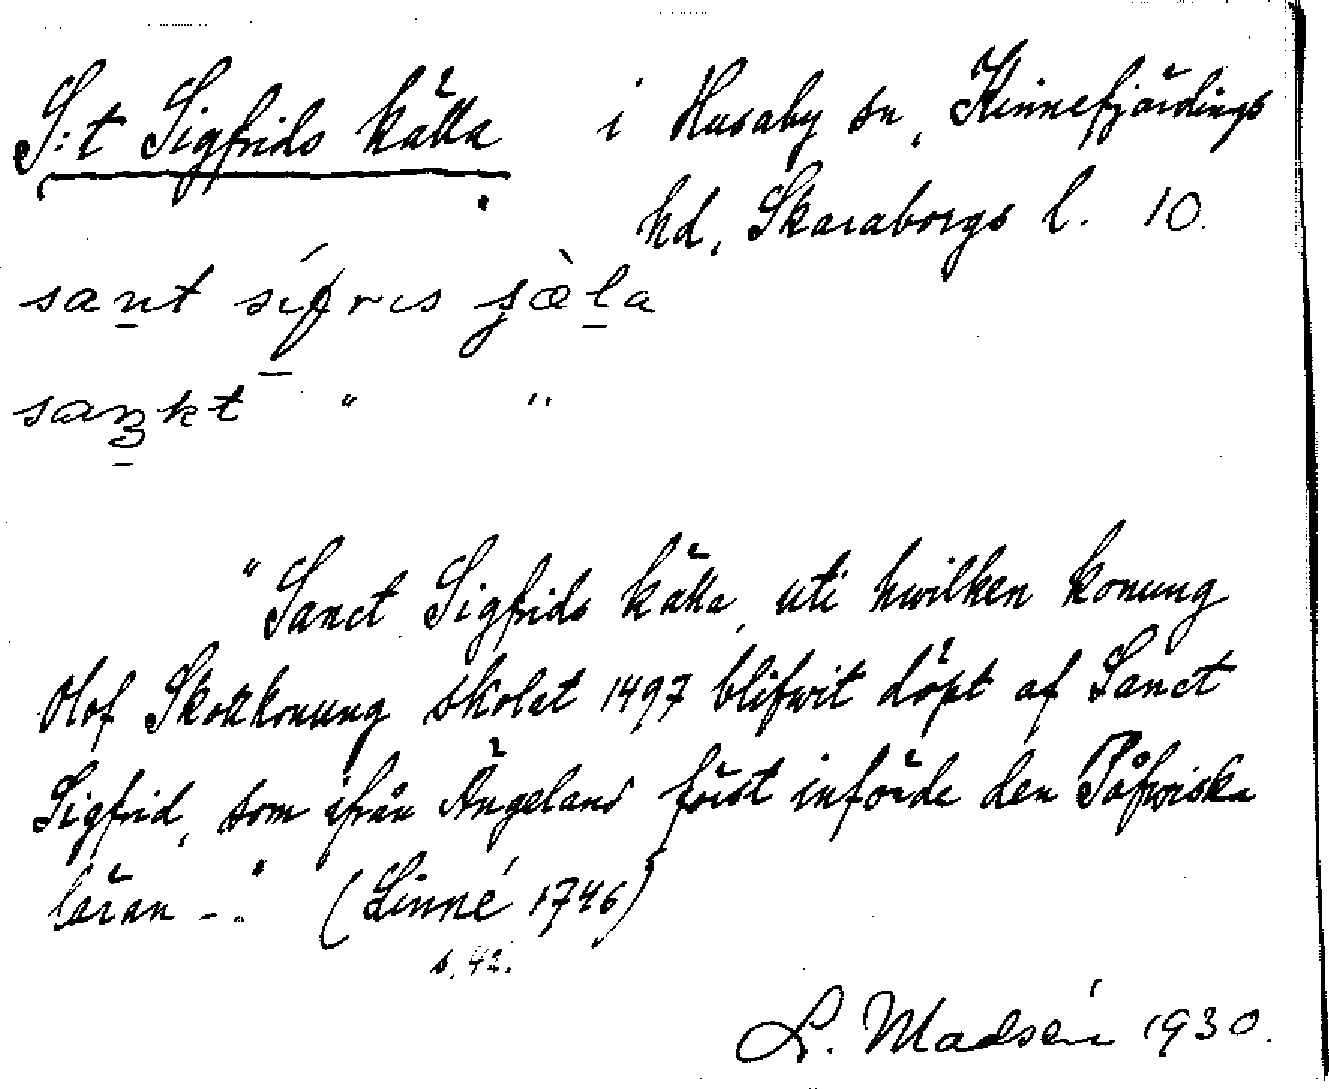 S:t Sigfrids källa i Husaby sn, Kinnefjärdings
hd, Skaraborgs l. 10.
sant sífris ʂæ̀la
saŋkt " "
"Sanct Sigfrids källa, uti hwilken konung
Olof Skottkonung skolat 1497 blifwit döpt af Sanct
Sigfrid, som ifrån Ängeland först införde den Påfwiska
läran -." (Linné 1746)
s. 42.
L. Madsén 1930.